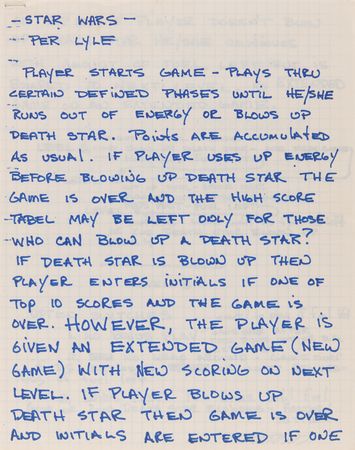 - STAR WARS -
- PER LYLE
-
PLAYER STARTS GAME - PLAYS THRU
CERTAIN DEFINED PHASES UNTIL HE/SHE
RUNS OUT OF ENERGY OR BLOWS UP
DEATH STAR. POINTS ARE ACCUMULATED
AS USUAL. IF PLAYER USES UP ENERGY
BEFORE BLOWING UP DEATH STAR THE
GAME IS OVER AND THE HIGH SCORE
TABEL MAY BE LEFT ONLY FOR THOSE
WHO CAN BLOW UP A DEATH STAR?
IF DEATH STAR IS BLOWN UP THEN
PLAYER ENTERS INITIALS IF ONE OF
TOP 10 SCORES AND THE GAME IS
OVER. HOWEVER, THE PLAYER IS
GIVEN AN EXTENDED GAME (NEW
GAME) WITH NEW SCORING ON NEXT
LEVEL. IF PLAYER BLOWS UP
DEATH STAR THEN GAME IS OVER
AND INITIALS ARE ENTERED IF ONE